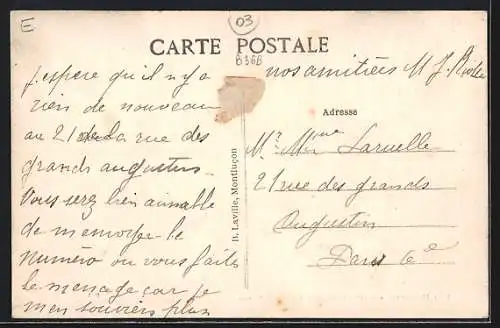 E
03
B36B
CARTE POSTALE
nos amitiées M J.
J'espere qu'il n'y a
rien de nouveau
au 21 de la rue des
grands augustins.
Vous serez bien aimable
de m'envoyer le
numéro ou vous faits
le menage car je
m'en souviens plus
B. Laville, Montluçon
Adresse
Mr Mme Laruelle
21 rue des grands
Augustins
Paris 6e